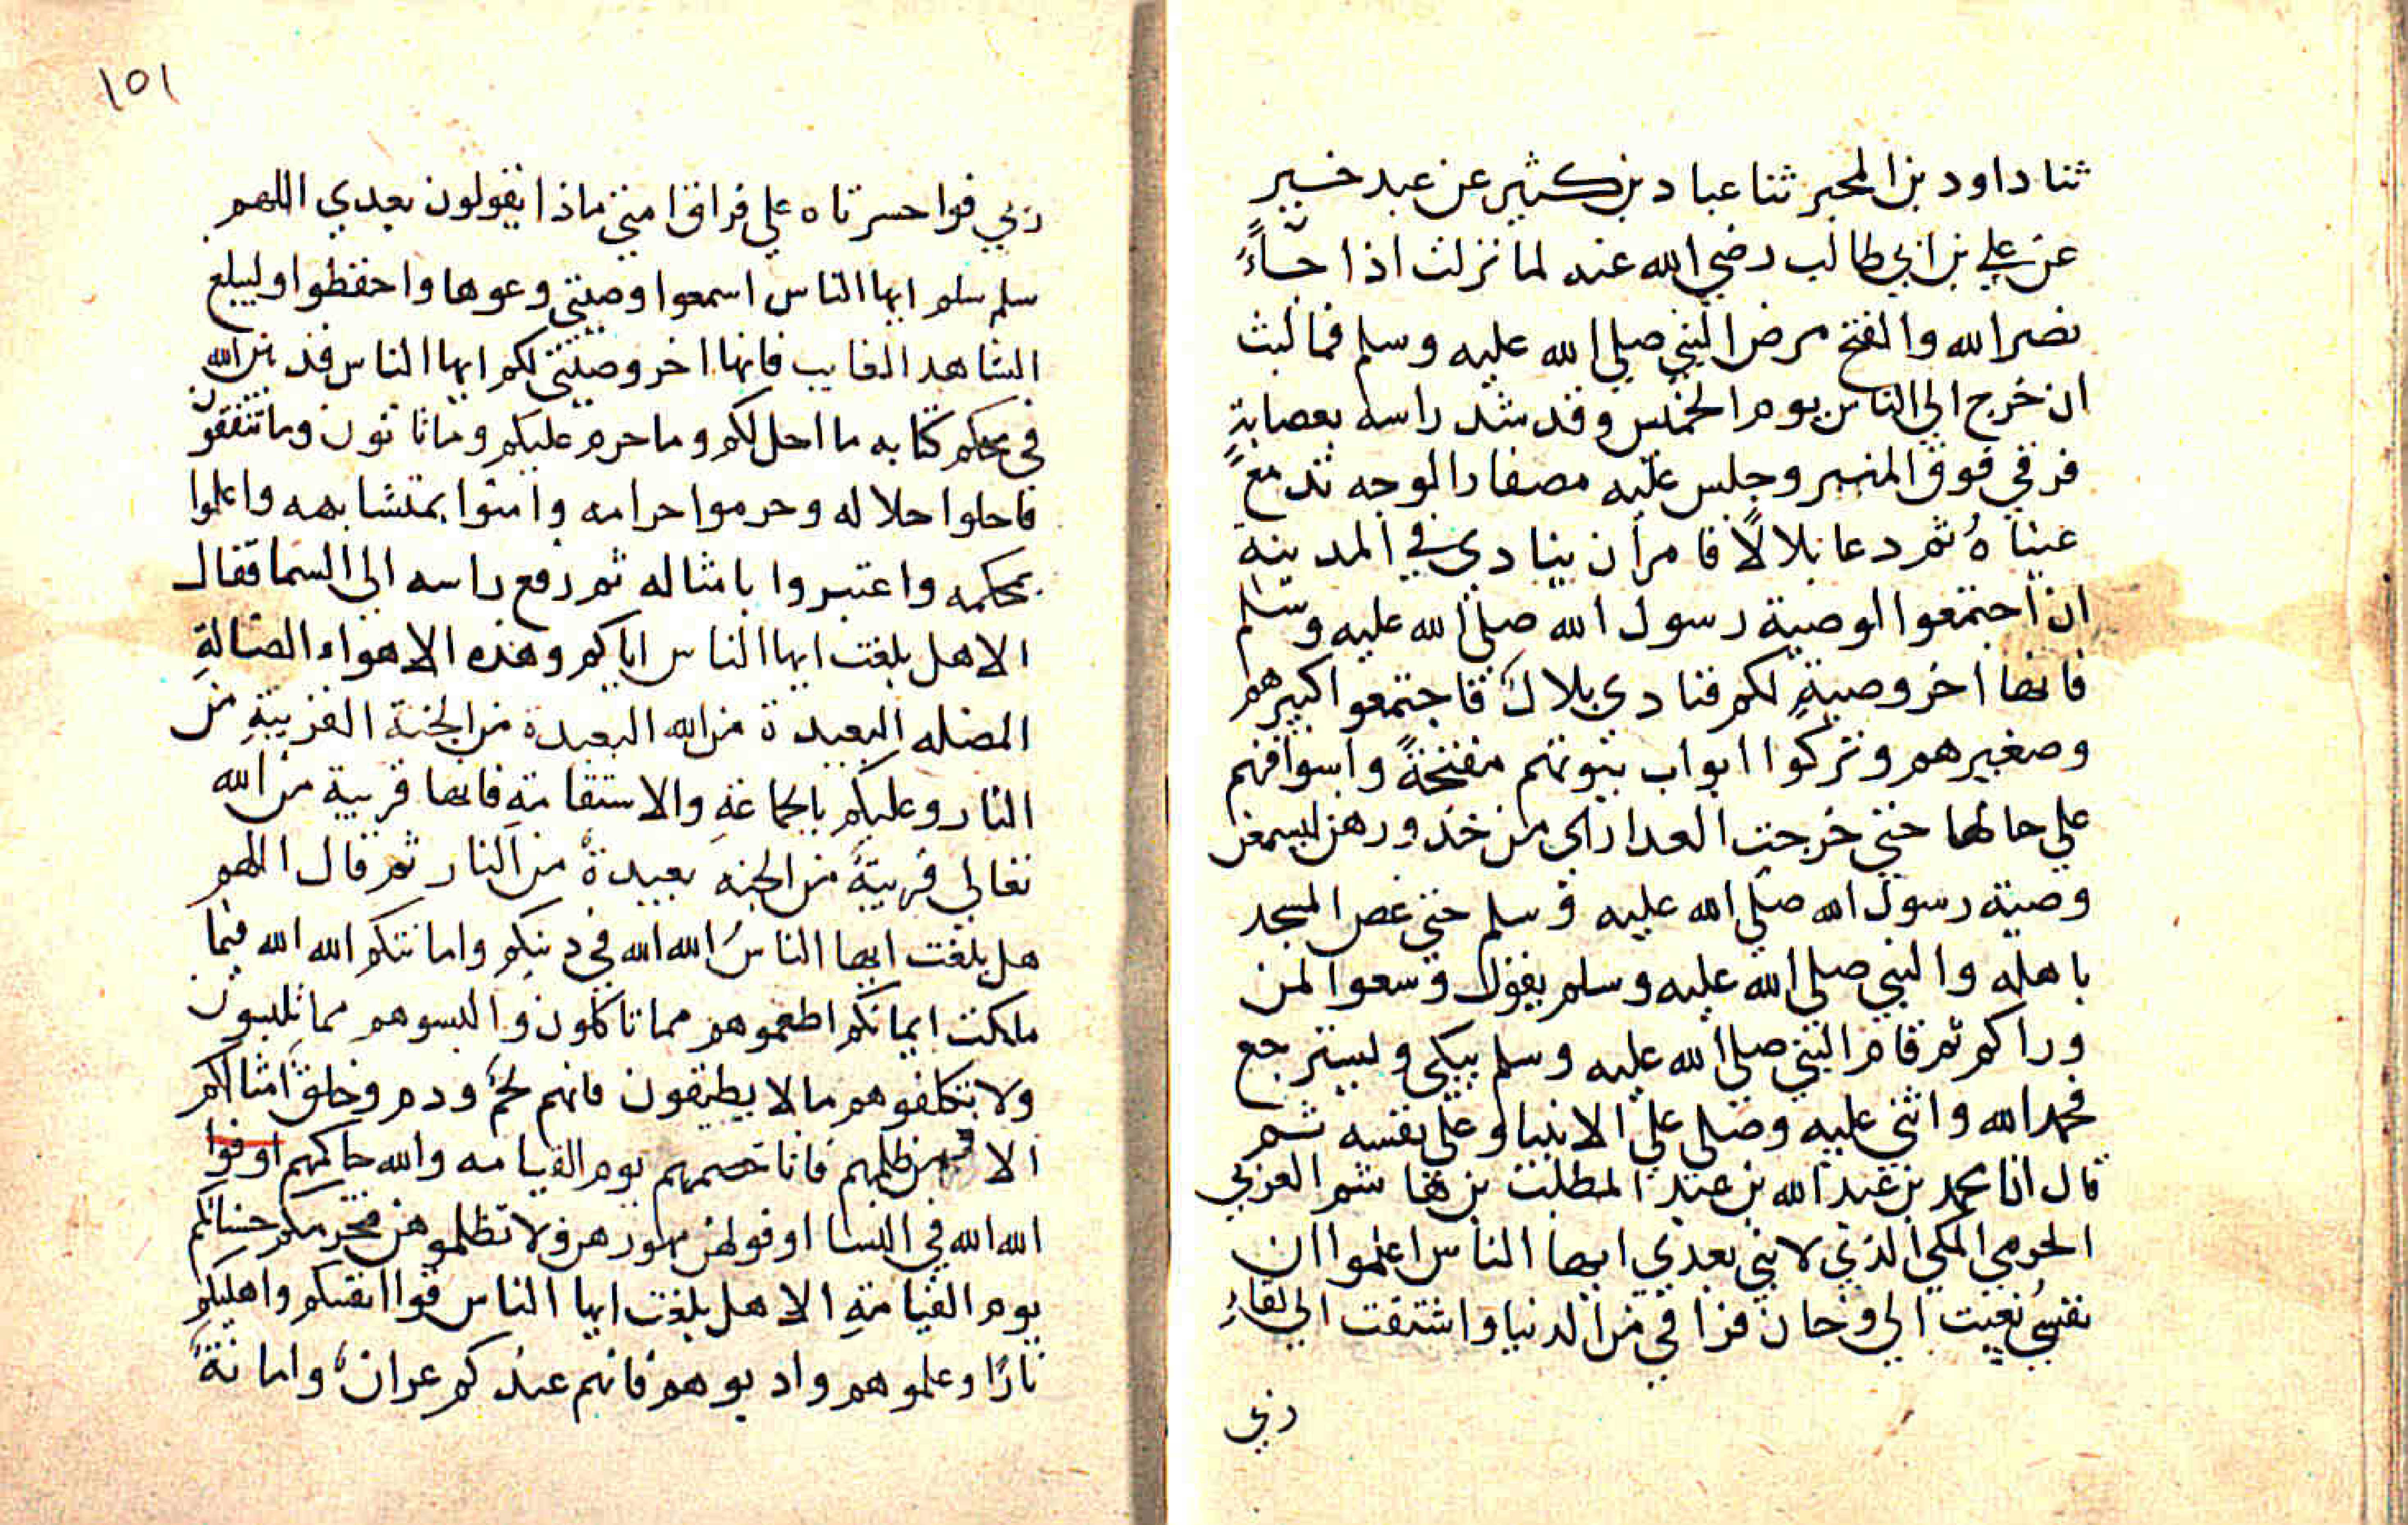 ثنا داود بن المحبر ثنا عباد بن كثير عن عبد خير
عن علي بن ابي طالب رضي الله عنه لما نزلت اذا جاءً
نصر الله والفتح مرض النبي صلي الله عليه وسلم فما لبث
ان خرج الي الناس يوم الخميس وقد شد راسه بعصابةٍ
فرقي فوق المنبر وجلس عليه مصفار الوجه تدمع
عيناهُ ثم دعا بلالًا فامر ان ينادي في المدينة
ان اجتمعوا لوصية رسول الله صلي الله عليه وسلم
فانها اخر وصيةٍ لكم فنادي بلال فاجتمعوا كبيرهم
وصغيرهم وتركوا ابواب بيوتهم مفتحةً واسواقهم
علي حالها حتي خرجت العداراي من خدورهن ليسمعن
وصية رسول الله صلي الله عليه وسلم حتي غص المسجد
باهله والنبي صلي الله عليه وسلم يقول وسعوا لمن
وراكم ثم قام النبي صلي الله عليه وسلم يبكي ويسترجع
فحمد الله واثني عليه وصلي علي الانبيا وعلي نفسه ثم
قال انا محمد بن عبد الله بن عبد المطلب بن هاشم العربي
الحرمي المكي الذي لا نبي بعدي ايها الناس اعلموا ان
نفسي نعيت الي وحان فراقي من الدنيا واشتقت الي لقاءِ
ربي
١٥١
ربي فواحسرتاه علي فراق امتي ماذا يقولون بعدي اللهم
سلم سلم ايها الناس اسمعوا وصيتي وعوها واحفظوا وليبلغ
الشاهد الغايب فانها اخر وصيتي لكم ايها الناس قد بين الله
في محكم كتابه ما احل لكم وما حرم عليكم وما تاتون وما تتقون
فاحلوا حلاله وحرموا حرامه وامنوا بمتشابهه واعملوا
بمحكمه واعتبروا بامثاله ثم رفع راسه الي السما فقال
الا هل بلغت ايها الناس اياكم وهذه الاهواء الضالةِ
المضله البعيدة من الله البعيدة من الجنة القريبةِ من
النار وعليكم بالجماعةِ والاستقامةِ فانها قريبة من الله
تعالي قريبةً من الجنه بعيدة من النار ثم قال اللهم
هل بلغت ايها الناسُ الله الله في دينكم وامانتكم الله الله فيما
ملكت ايمانكم اطعموهم مما تاكلون والبسوهم مما تلبسون
ولا تكلفوهم ما لا يطيقون فانهم لحم ودم وخلق امثالكم
الا فمن ظلمهم فانا خصمهم يوم القيامه والله حاكمهم اوفوا
الله الله في النسا اوفوا لهن مهورهن ولا تظلموهن فتحرمكم حسناتكم
يوم القيامةِ الا هل بلغت ايها الناس قوا انفسكم واهليكم
نارًا وعلموهم وادبوهم فانهم عندكم عوان وامانةً